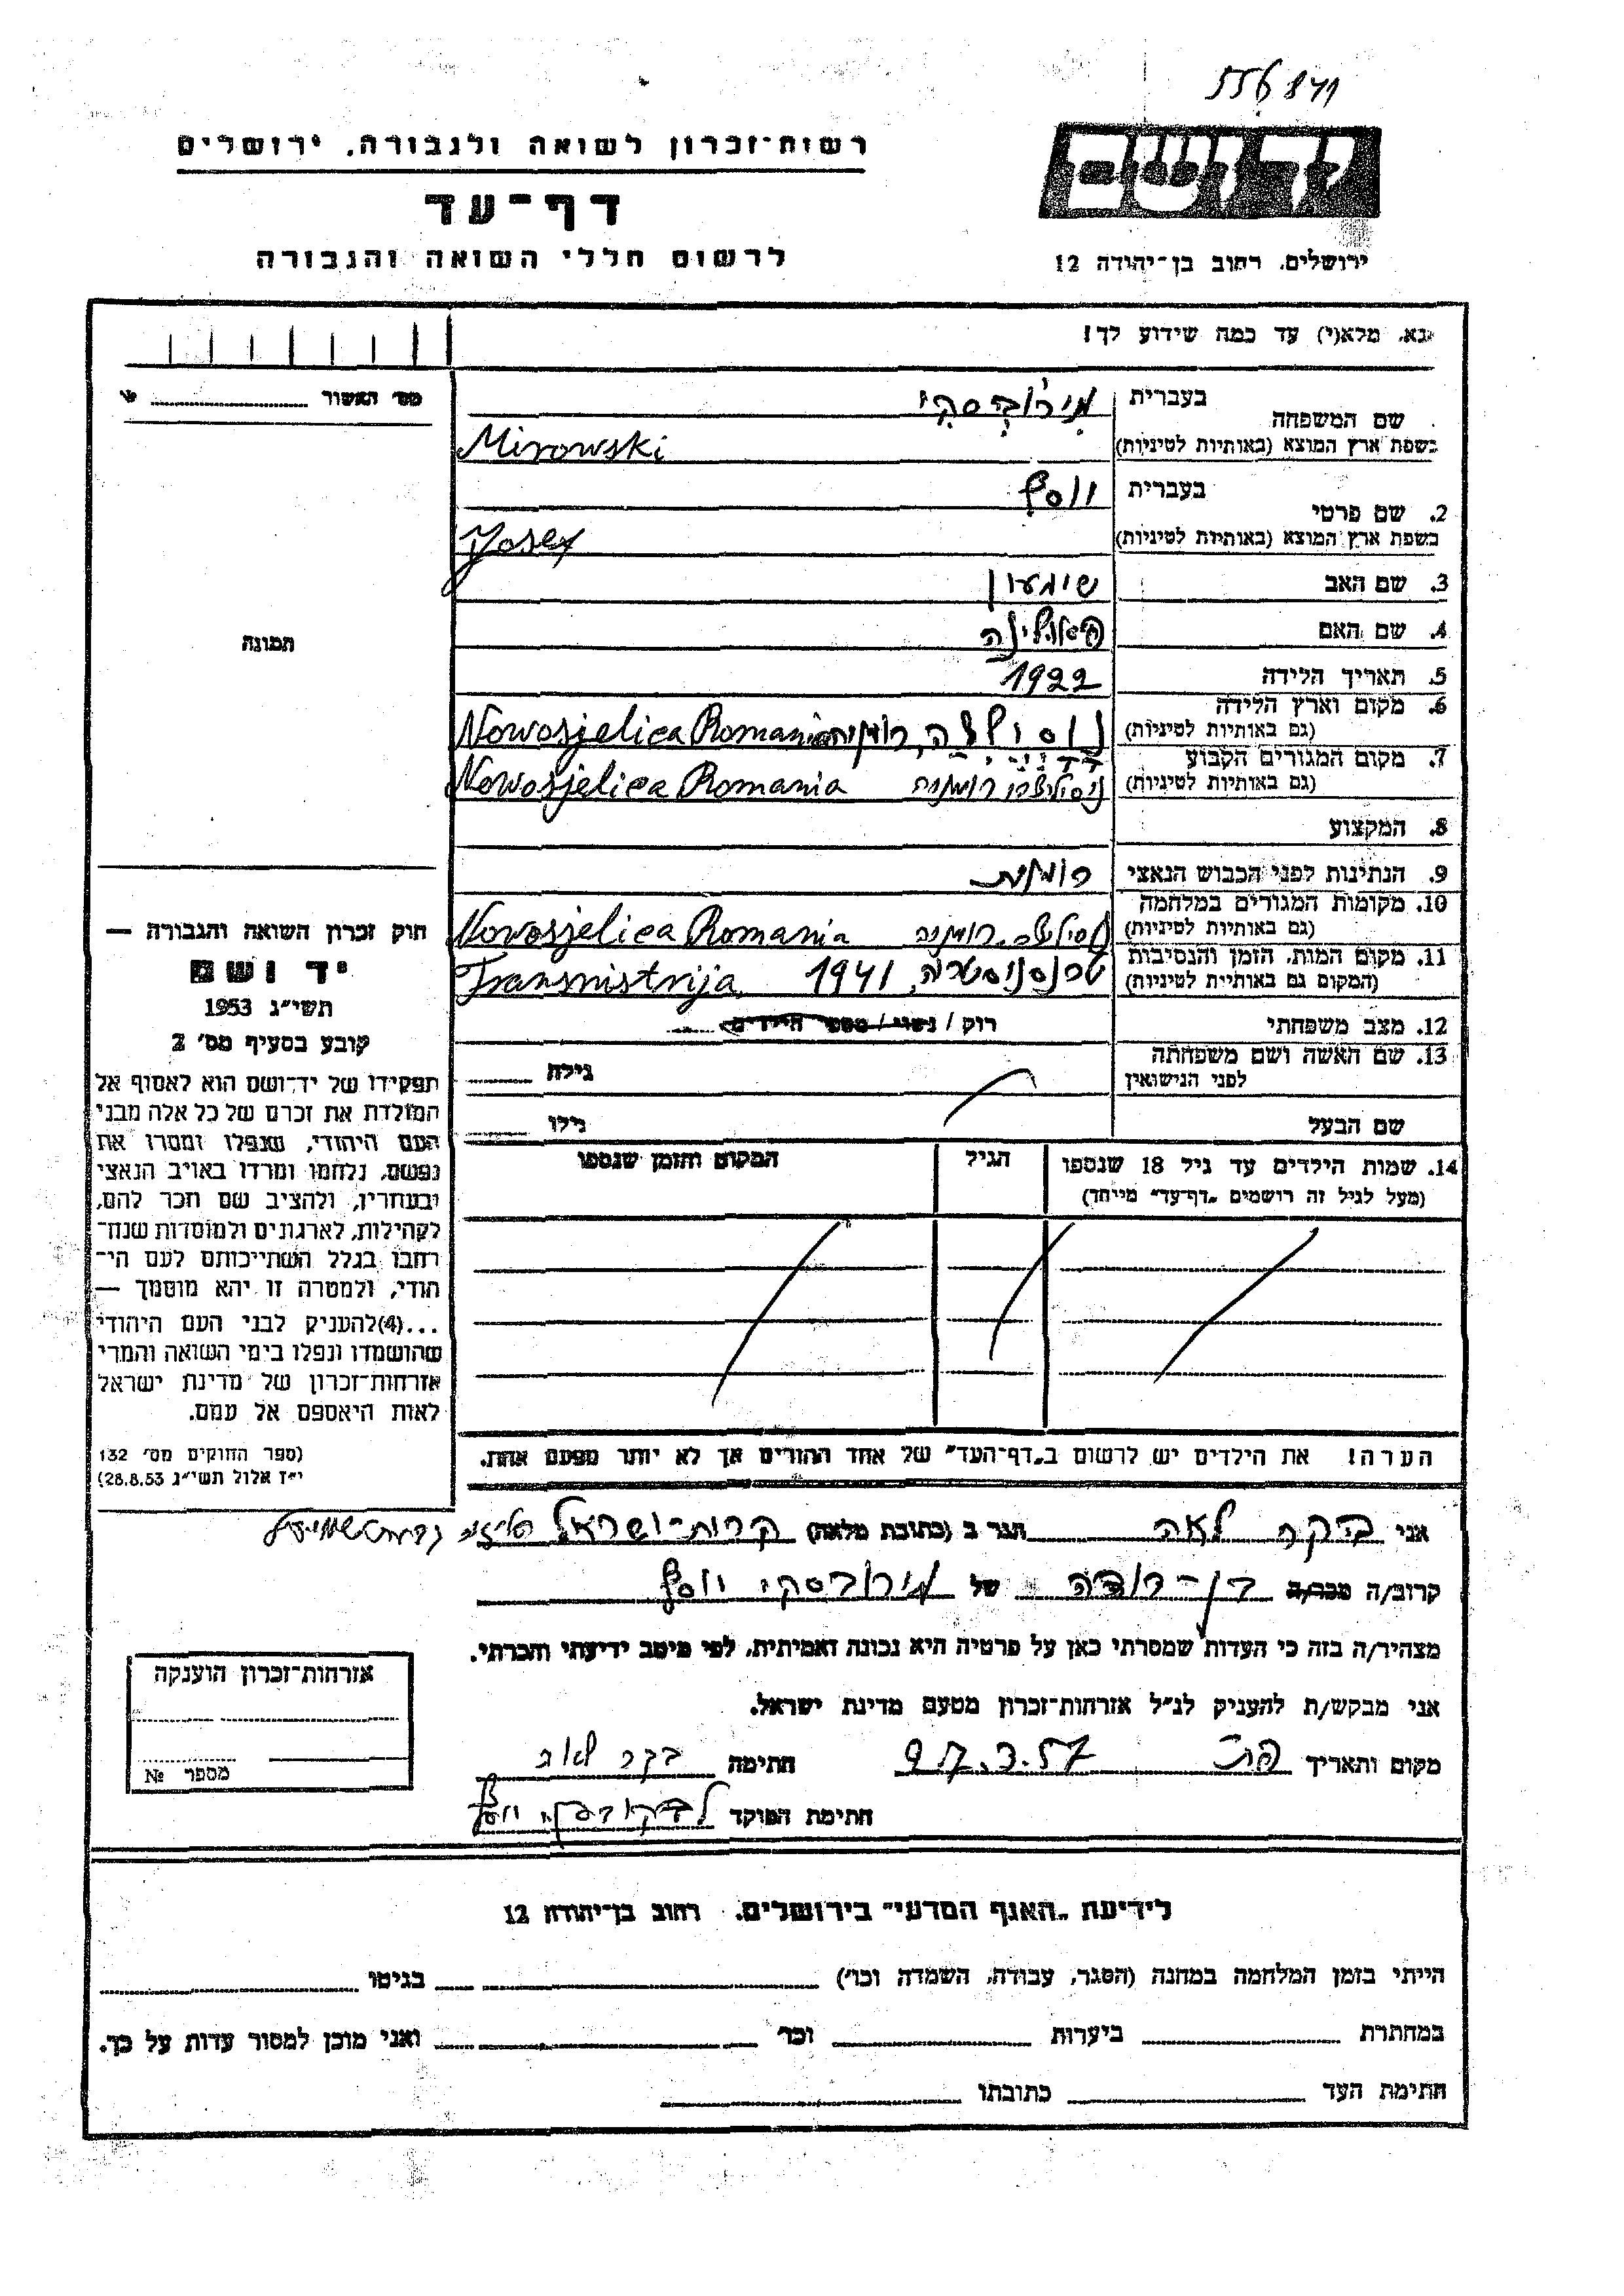 556871
רשות־זכרון לשואה ולגבורה, ירושלים
דף־עד
לרשום חללי השואה והגבורה
יד ושם
ירושלים, רחוב בן־יהודה 12
נא, מלא(י) עד כמה שידוע לך!
מס׳ האשור
שם המשפחה בעברית מירובסקי
בשפת ארץ המוצא (באותיות לטיניות) Mirowski
2. שם פרטי בעברית יוסף
בשפת ארץ המוצא (באותיות לטיניות) Josef
3. שם האב שימעון
4. שם האם פאולינה
5. תאריך הלידה 1922
6. מקום וארץ הלידה (גם באותיות לטיניות) Nowosjelica Romania
7. מקום המגורים הקבוע (גם באותיות לטיניות) Nowosjelica Romania
8. המקצוע
9. הנתינות לפני הכבוש הנאצי רומנית
10. מקומות המגורים במלחמה (גם באותיות לטיניות) Nowosjelica Romania
11. מקום המות, הזמן והנסיבות (המקום גם באותיות לטיניות) 1941 Transnistrija
12. מצב משפחתי רוק / נשוי / מספר הילדים
13. שם האשה ושם משפחתה לפני הנישואין גילה
שם הבעל גילו
14. שמות הילדים עד גיל 18 שנספו הגיל המקום והזמן שנספו
(מעל לגיל זה רושמים „דף־עד״ מייחד)
הערה! את הילדים יש לרשום ב„דף־העד״ של אחד ההורים אך לא יותר מפעם אחת.
תמונה
חוק זכרון השואה והגבורה —
יד ושם
תשי״ג 1953
קובע בסעיף מס׳ 2
תפקידו של יד־ושם הוא לאסוף אל
המולדת את זכרם של כל אלה מבני
העם היהודי, שנפלו ומסרו את
נפשם, נלחמו ומרדו באויב הנאצי
ובעוזריו, ולהציב שם וזכר להם,
לקהילות, לארגונים ולמוסדות שנח־
רחבו בגלל השתייכותם לעם הי־
הודי, ולמטרה זו יהא מוסמך —
...(4)להעניק לבני העם היהודי
שהושמדו ונפלו בימי השואה והמרי
אזרחות־זכרון של מדינת ישראל
לאות היאספם אל עמם.
(ספר החוקים מס׳ 132
י״ז אלול תשי״ג 28.8.53)
אני בקר לאה הגר ב (כתובת מלאה) קרית־ישראל
קרוב/ה מכר/ה בן־דודה של מירובסקי יוסף
מצהיר/ה בזה כי העדות שמסרתי כאן על פרטיה היא נכונה ואמיתית, לפי מיטב ידיעתי והכרתי.
אני מבקש/ת להעניק לנ״ל אזרחות־זכרון מטעם מדינת ישראל.
מקום ותאריך 9.7.3.57 חתימה בקר לאה
חתימת הפוקד
אזרחות־זכרון הוענקה
מספר №
לידיעת „האגף המדעי״ בירושלים, רחוב בן־יהודה 12
הייתי בזמן המלחמה במחנה (הסגר, עבודה, השמדה וכו׳) בגיטו
במחתרת ביערות וכו׳ ואני מוכן למסור עדות על כך.
חתימת העד כתובתו